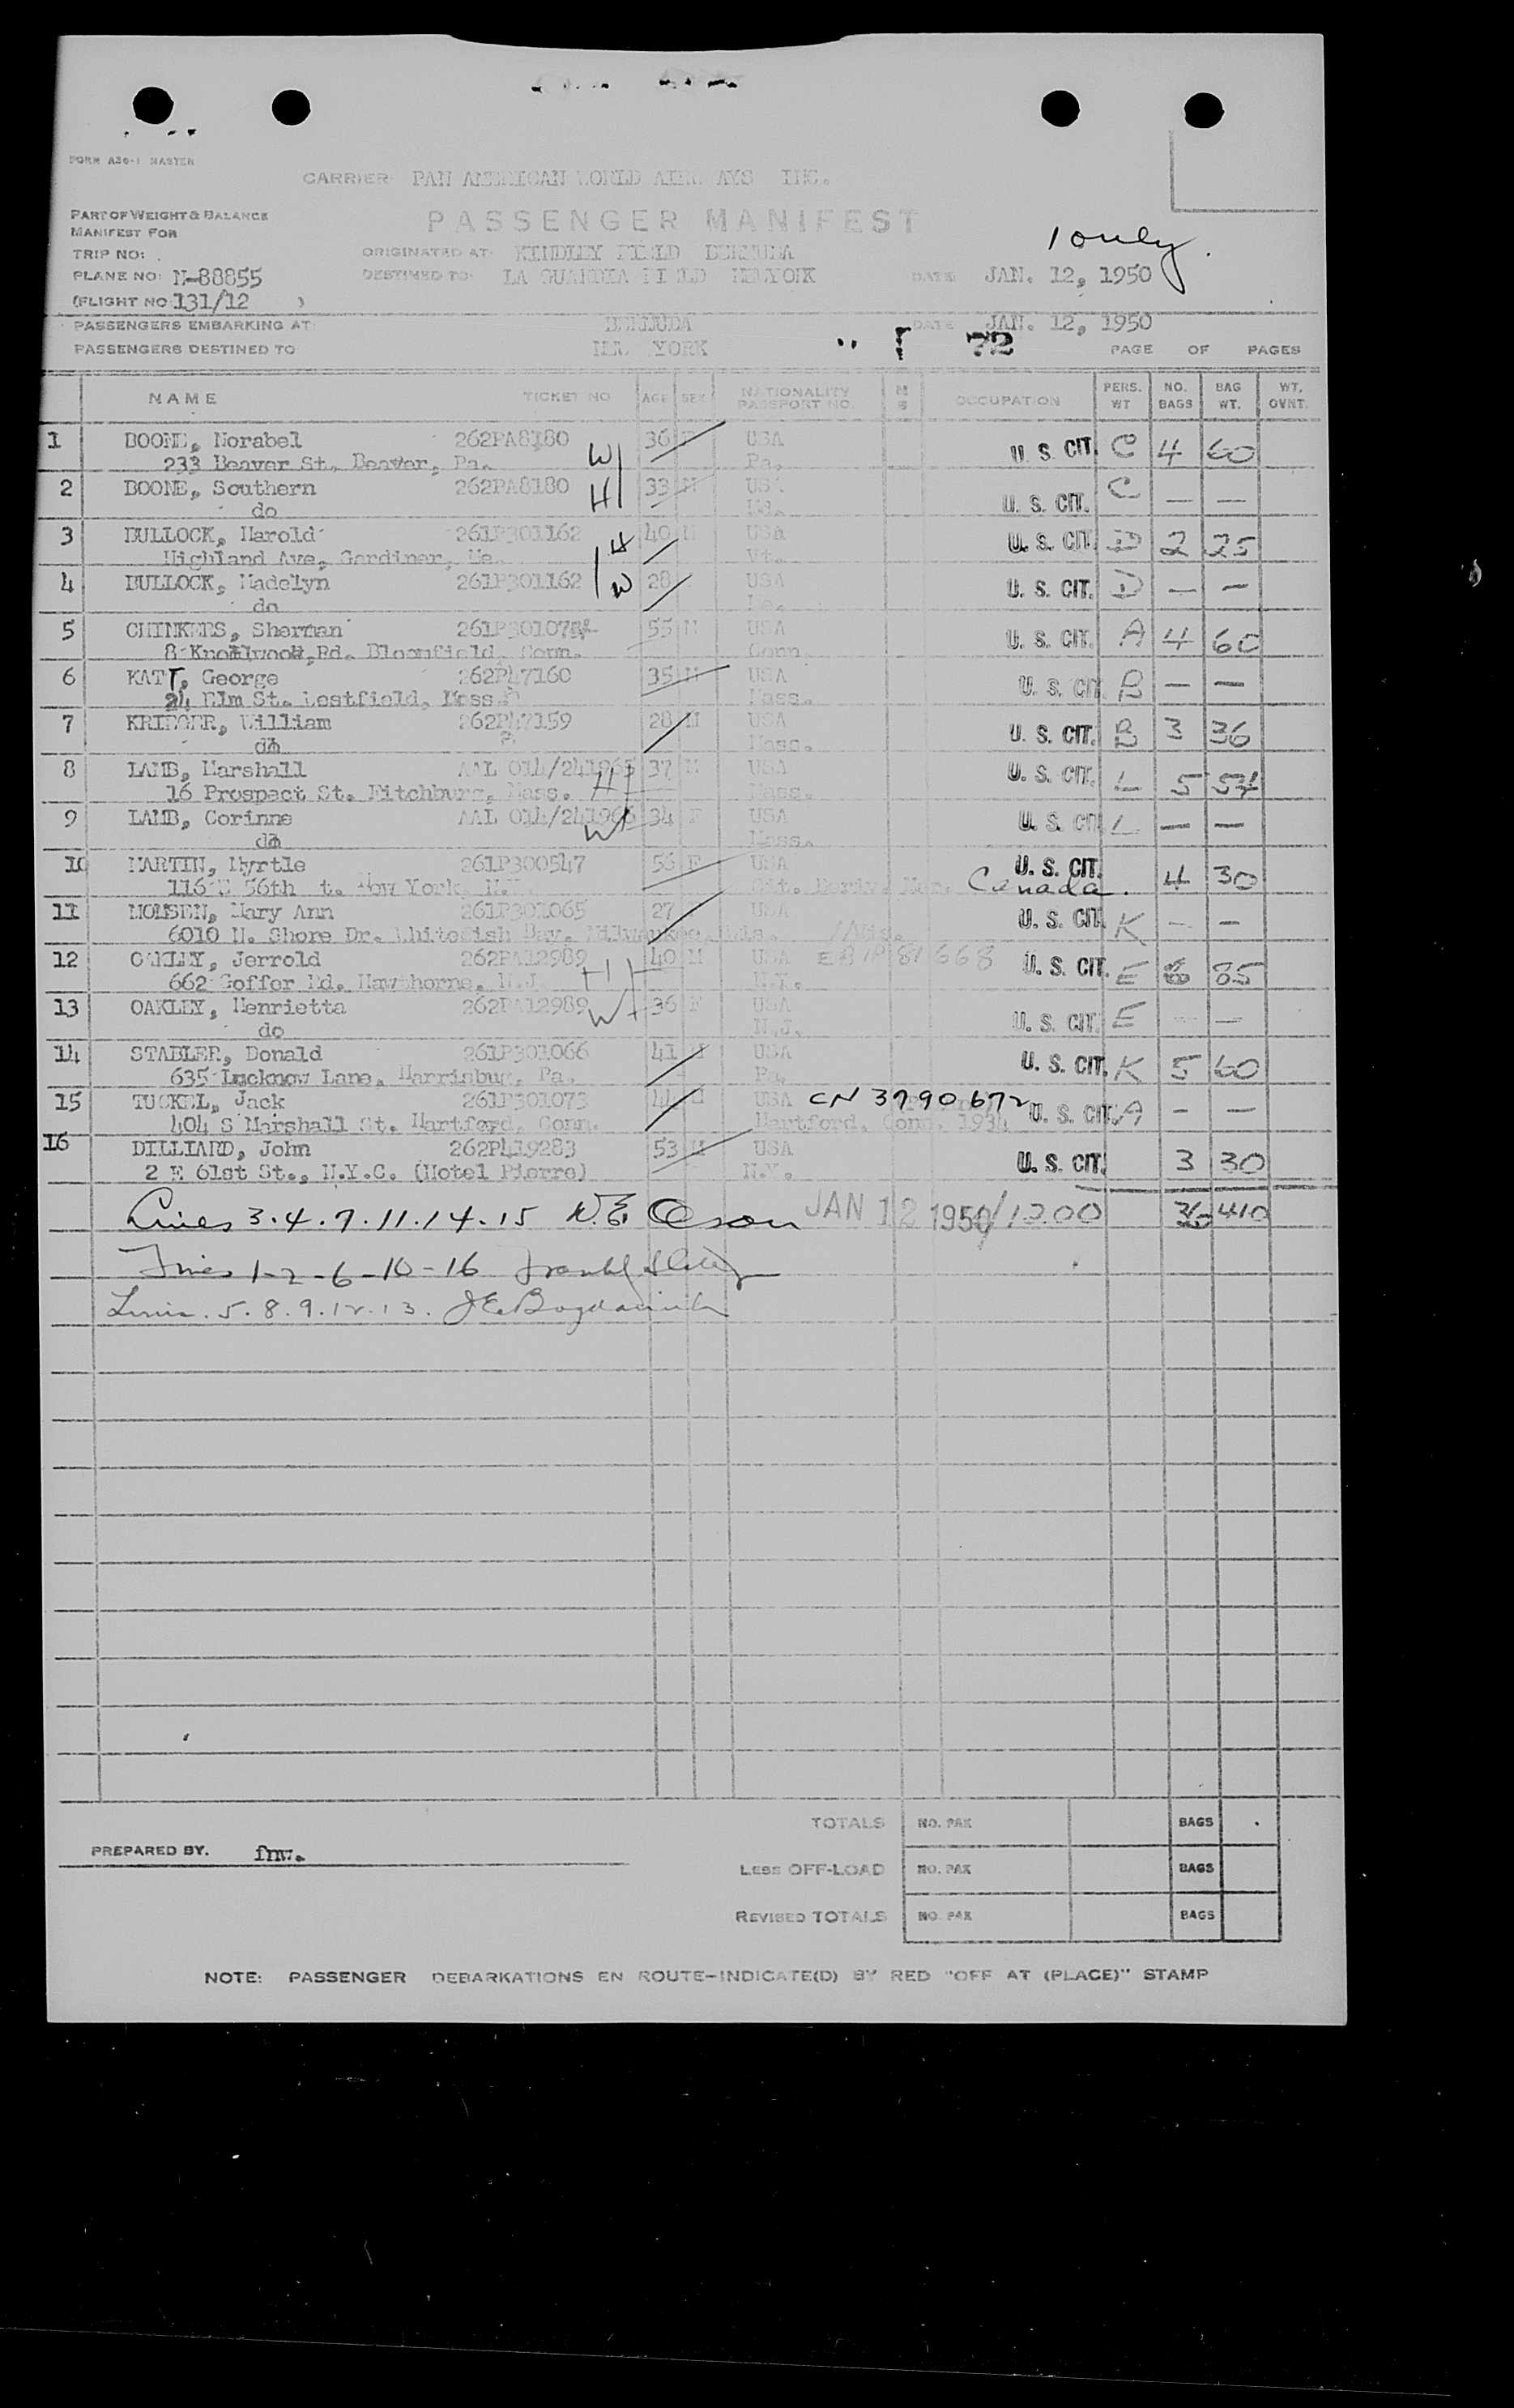 FORM A20-1 MASTER
CARRIER PAN AMERICAN WORLD AIRWAYS INC.
PART OF WEIGHT & BALANCE
MANIFEST FOR
PASSENGER MANIFEST
1 only.
TRIP NO:
ORIGINATED AT: KINDLEY FIELD BERMUDA
PLANE NO: N-88855
DESTINED TO: LA GUARDIA FIELD NEWYORK DATE JAN. 12, 1950
(FLIGHT NO 131/12 )
PASSENGERS EMBARKING AT: BERMUDA DATE JAN. 12, 1950
PASSENGERS DESTINED TO NEW YORK 72 PAGE OF PAGES
NAME TICKET NO AGE SEX NATIONALITY PASSPORT NO. OCCUPATION PERS. WT NO. BAGS BAG WT. WT. OVNT.
1 BOONE, Norabel 262PA8180 W 36 F USA U. S. CIT. C 4 60
233 Beaver St. Beaver, Pa. Pa.
2 BOONE, Southern 262PA8180 H 33 M USA U. S. CIT. C — —
do
3 BULLOCK, Harold 261P301162 H 40 M USA U. S. CIT. D 2 25
Highland Ave, Gardiner, Me. Vt.
4 BULLOCK, Madelyn 261P301162 W 28 USA U. S. CIT. D — —
do Me.
5 CHINKERS, Sherman 261P30107 55 M USA U. S. CIT. A 4 60
8 Knollwood, Rd. Bloomfield, Conn. Conn.
6 KATT, George 262P47160 35 M USA U. S. CIT. B — —
24 Elm St. Westfield, Mass. Mass.
7 KRIEGER, William 262P47159 28 M USA U. S. CIT. B 3 36
do Mass.
8 LAMB, Marshall AAL 014/241965 H 37 M USA U. S. CIT. L 5 54
16 Prospect St. Fitchburg, Mass. Mass.
9 LAMB, Corinne AAL 014/241966 W 34 F USA U. S. CIT L — —
do Mass.
10 MARTIN, Myrtle 261P300547 56 F USA U. S. CIT. 4 30
116 E 56th t. New York, N. Canada.
11 MOLSEN, Mary Ann 261P301065 27 USA U. S. CIT. K — —
6010 N. Shore Dr. Whitefish Bay. Milwaukee, Wis. Wis.
12 OAKLEY, Jerrold 262PA12989 H 40 M USA U. S. CIT. E 6 85
662 Goffer Rd. Hawthorne. N.J. N.Y.
13 OAKLEY, Henrietta 262PA12989 W 36 F USA U. S. CIT. E — —
do N.J.
14 STABLER, Donald 261P301066 41 M USA U. S. CIT. K 5 60
635 Lucknow Lane, Harrisburg, Pa. Pa.
15 TUCKEL, Jack 261P301073 44 M USA CN 3790672 U. S. CIT. A — —
404 S Marshall St. Hartford, Conn. Hartford, Conn. 1934
16 DILLIARD, John 262P419283 53 M USA U. S. CIT. 3 30
2 E 61st St., N.Y.C. (Hotel Pierre) N.Y.
Lines 3.4.7.11.14.15 JAN 12 1950/1200 36 410
Lines 1-2-6-10-16
Lines. 5.8.9.12.13.
TOTALS NO. PAX BAGS
PREPARED BY. fmw.
LESS OFF-LOAD NO. PAX BAGS
REVISED TOTALS NO. PAX BAGS
NOTE: PASSENGER DEBARKATIONS EN ROUTE-INDICATE(D) BY RED "OFF AT (PLACE)" STAMP